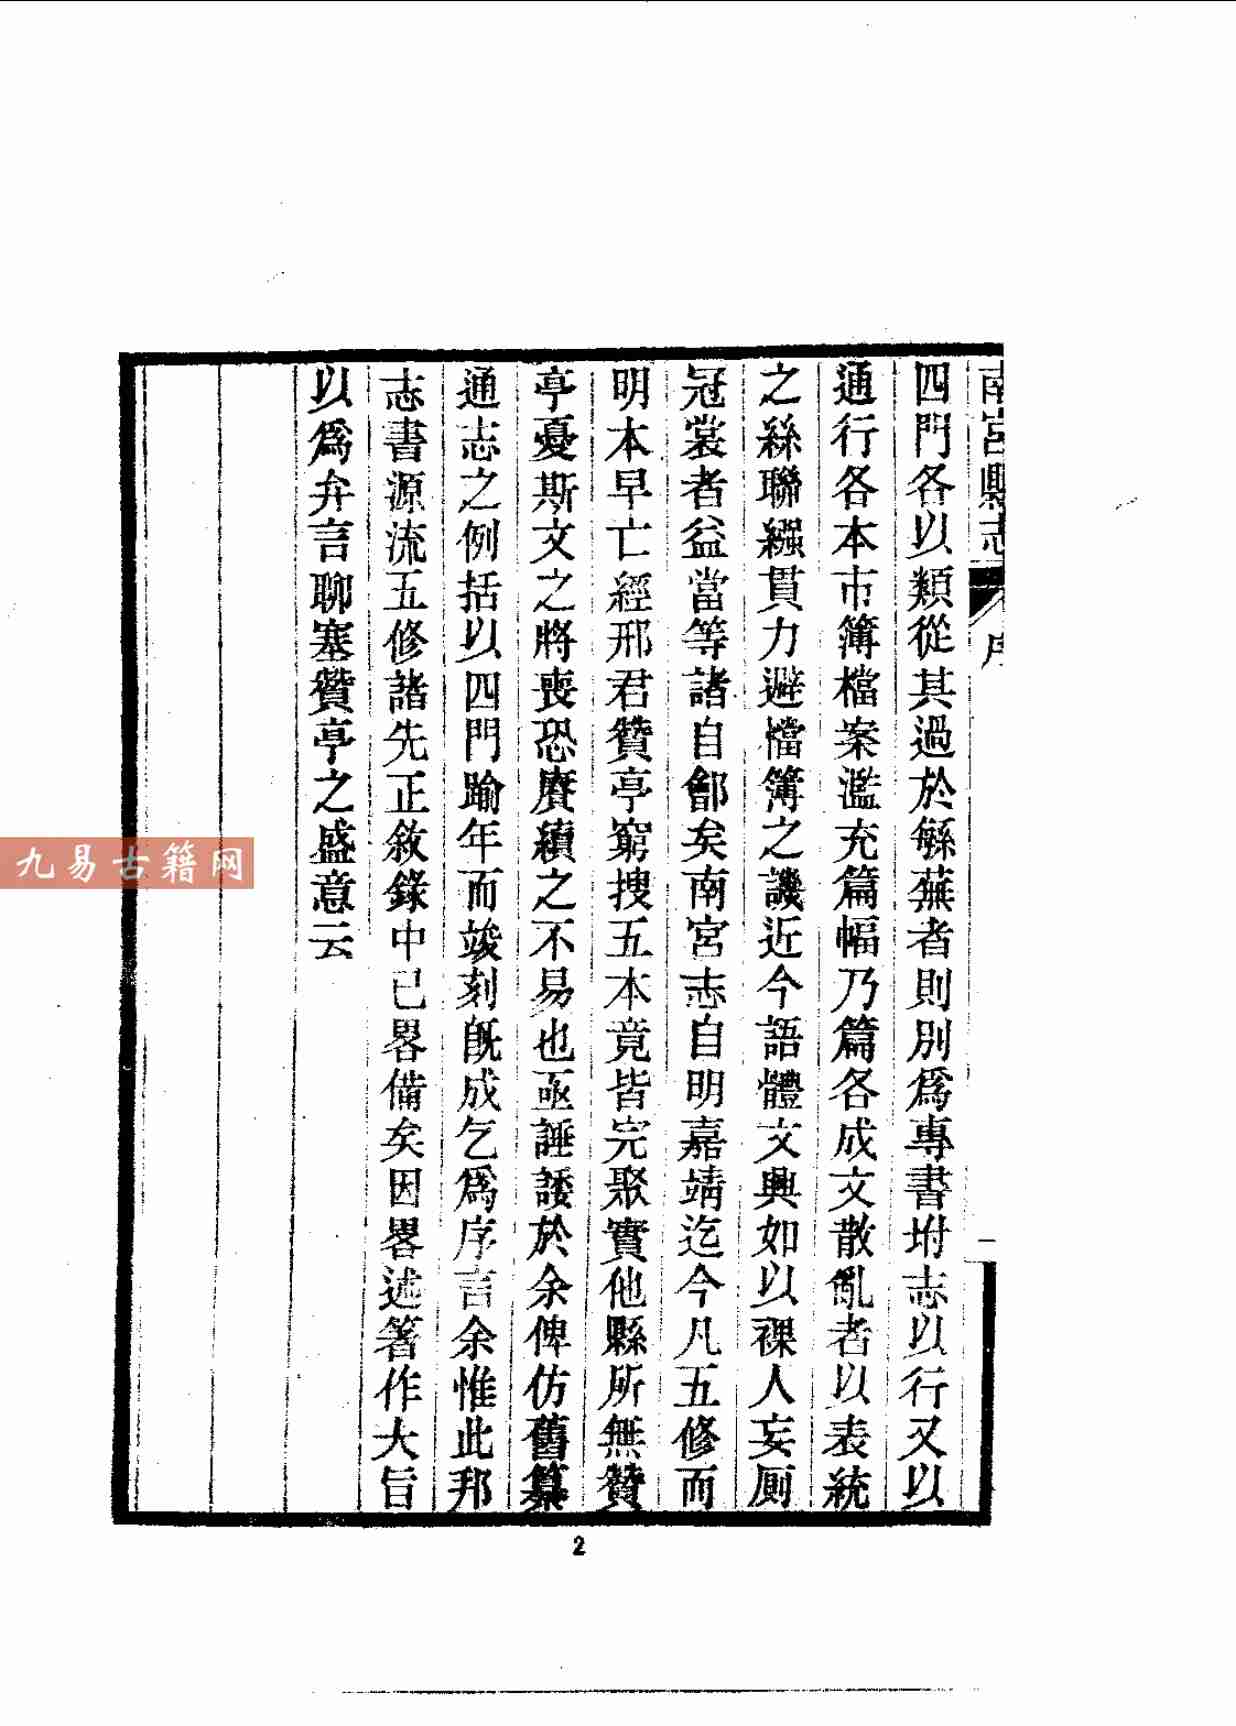 南宮縣志 序 一
四門各以類從其過於繇蕪者則別爲專書坿志以行又以
通行各本市簿檔案濫充篇幅乃篇各成文散亂者以表統
之絲聯繦貫力避檔簿之譏近今語體文興如以裸人妄厠
冠裳者益當等諸自鄶矣南宮志自明嘉靖迄今凡五修而
明本早亡經邢君贊亭窮搜五本竟皆完聚實他縣所無贊
亭憂斯文之將喪恐賡續之不易也亟諈諉於余俾仿舊纂
通志之例括以四門踰年而竣刻旣成乞爲序言余惟此邦
志書源流五修諸先正敘錄中已畧備矣因畧述箸作大旨
以爲弁言聊塞贊亭之盛意云
九易古籍网
2